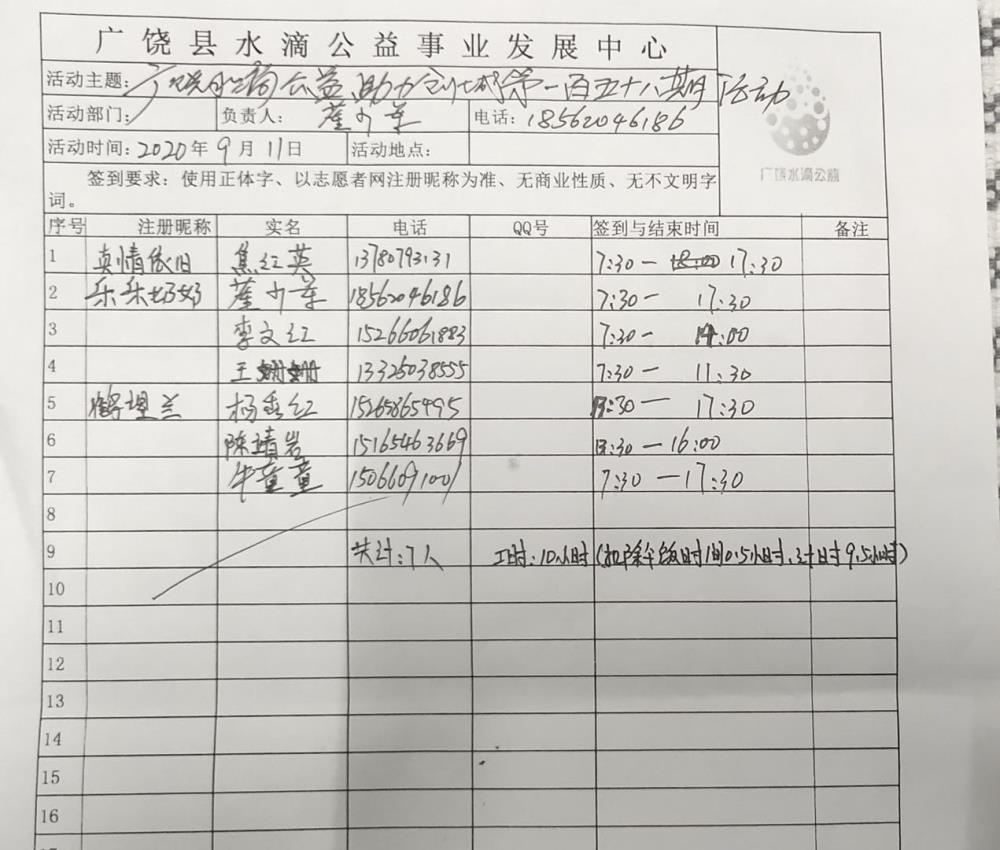 广饶县水滴公益事业发展中心
活动主题：广饶水滴公益助力创城第一百五十八期活动
活动部门： 负责人： 崔少军 电话：18562046186
活动时间：2020年9月11日 活动地点：
广饶水滴公益
签到要求：使用正体字、以志愿者网注册昵称为准、无商业性质、无不文明字
词。
序号 注册昵称 实名 电话 QQ号 签到与结束时间 备注
1 真情依旧 焦红英 13780793131 7:30— 17:30
2 乐乐妈妈 崔少军 18562046186 7:30— 17:30
3 李文红 15266061883 7:30— 14:00
4 王姗姗 13325038555 7:30— 11:30
5 杨秀红 15265865495 13:30— 17:30
6 陈靖岩 15165463669 13:30—16:00
7 牛童童 15066091001 7:30—17:30
8
9 共计：7人 工时：10小时（扣除午饭时间0.5小时，计时9.5小时）
10
11
12
13
14
15
16